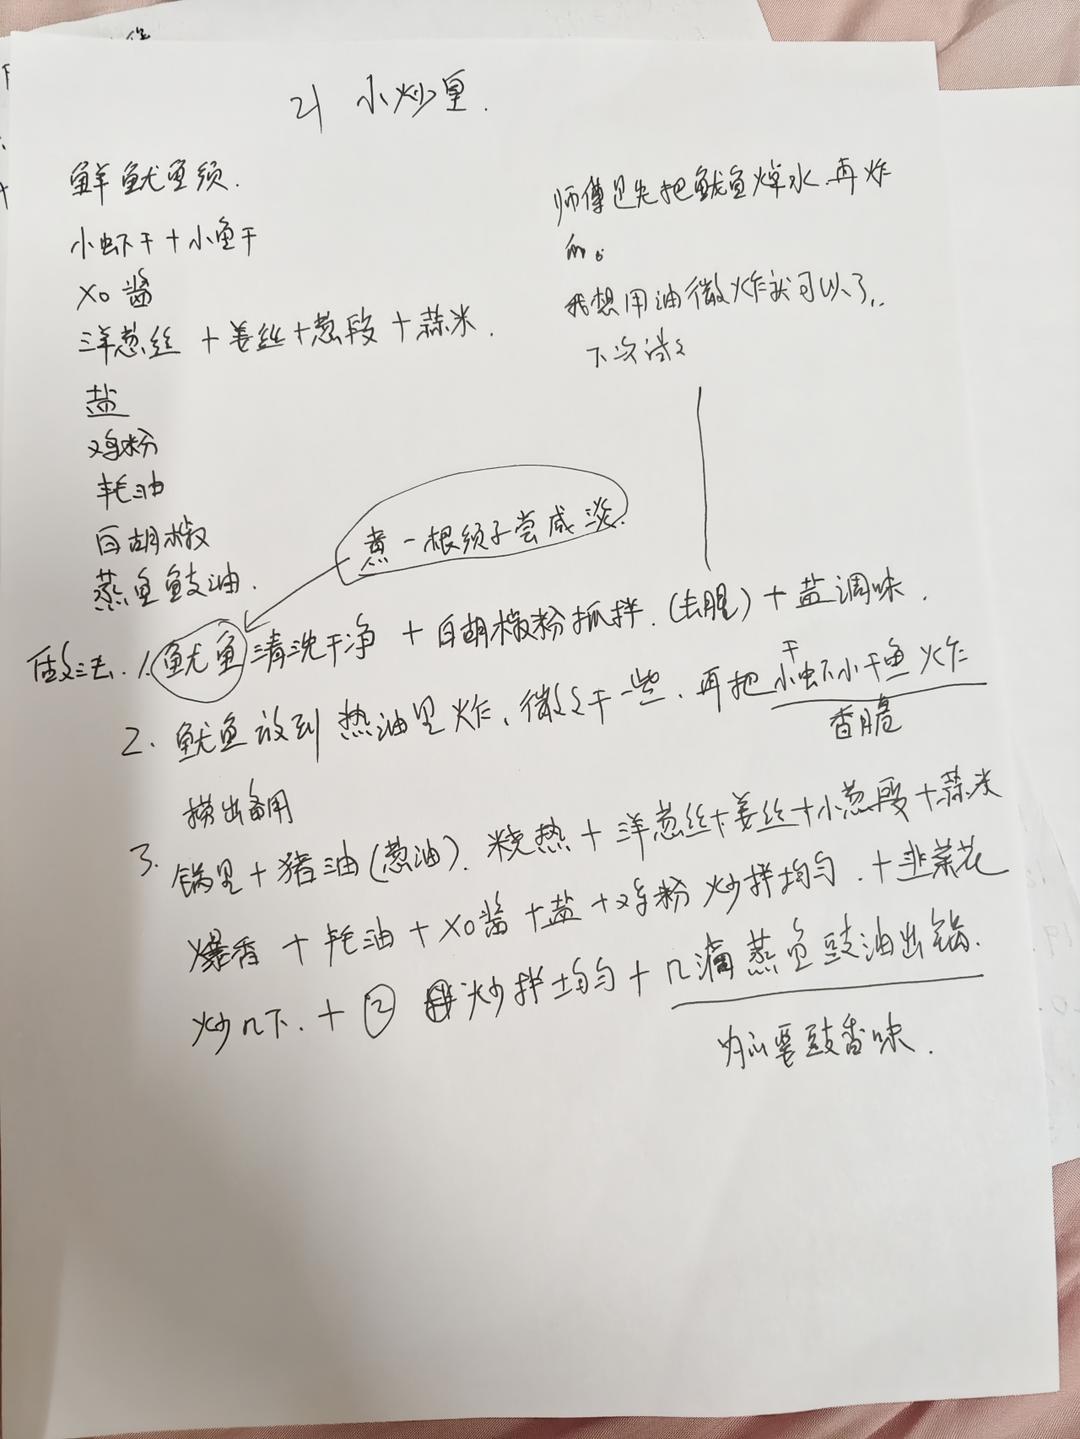 21 小炒皇.
鲜鱿鱼须.
小虾干+小鱼干
XO酱
洋葱丝+姜丝+葱段+蒜米.
盐
鸡粉
耗油
白胡椒
蒸鱼豉油.
师傅是先把鱿鱼焯水再炸
的。
我想用油微炸就可以了..
下次试试
煮一根须子尝咸淡.
做法. 1.鱿鱼清洗干净+白胡椒粉抓拌.(去腥)+盐调味.
2. 鱿鱼放到热油里炸,微微干一些.再把小虾干小干鱼炸
香脆
捞出备用
3. 锅里+猪油(葱油).烧热+洋葱丝+姜丝+小葱段+蒜米
爆香+耗油+XO酱+盐+鸡粉炒拌均匀.+韭菜花
炒几下.+②炒拌均匀+几滴蒸鱼豉油出锅.
豉香味.